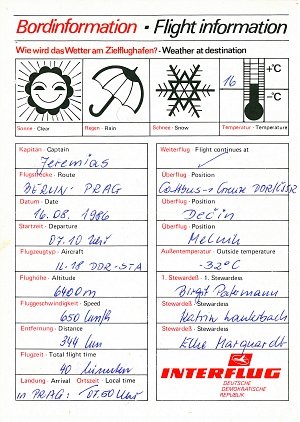 Bordinformation · Flight information
Wie wird das Wetter am Zielflughafen? - Weather at destination
16 +°C
-°C
Sonne · Clear Regen · Rain Schnee · Snow Temperatur · Temperature
Kapitän · Captain
Jeremias
Flugstrecke · Route
BERLIN - PRAG
Datum · Date
16.08. 1986
Startzeit · Departure
07.10 Uhr
Flugzeugtyp · Aircraft
IL-18 DDR-STA
Flughöhe · Altitude
6400 m
Fluggeschwindigkeit · Speed
650 km/h
Entfernung · Distance
344 km
Flugzeit · Total flight time
40 Minuten
Landung · Arrival Ortszeit · Local time
in PRAG: 07.50 Uhr
Weiterflug · Flight continues at
Überflug · Position
Cottbus → Grenze DDR/ČSSR
Überflug · Position
Dečin
Überflug · Position
Melnik
Außentemperatur · Outside temperature
-32°C
1. Stewardeß · 1. Stewardess
Birgit
Stewardeß · Stewardess
Katrin Lauterbach
Stewardeß · Stewardess
Elke Marquardt
INTERFLUG
DEUTSCHE
DEMOKRATISCHE
REPUBLIK